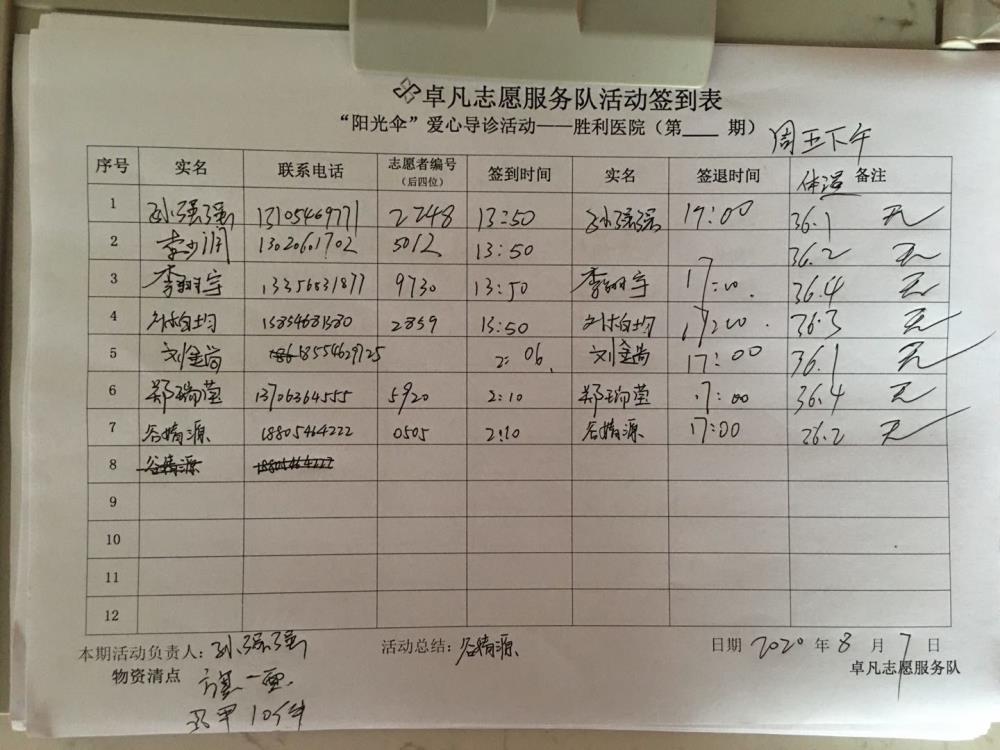 卓凡志愿服务队活动签到表
“阳光伞”爱心导诊活动——胜利医院（第 期） 周五下午
序号 实名 联系电话 志愿者编号（后四位） 签到时间 实名 签退时间 体温 备注
1 孙强强 13105469771 2248 13:50 孙强强 17:00 36.1 无
2 13020601702 5012 13:50 36.2 无
3 李翔宇 13356831877 9730 13:50 李翔宇 17:00. 36.4 无
4 刘柏均 2859 13:50 刘柏均 17:00. 36.3 无
5 刘金尚 18554629725 2:06. 刘金尚 17:00 36.1 无
6 郑瑞莹 13706364555 5920 2:10 郑瑞莹 17:00 36.4 无
7 谷婧源 18805464222 0505 2:10 谷婧源 17:00 36.2 无
8 谷婧源 18805464222
9
10
11
12
本期活动负责人：孙强强 活动总结：谷婧源 日期 2020 年 8 月 7 日
物资清点 一面. 卓凡志愿服务队
马甲 10件